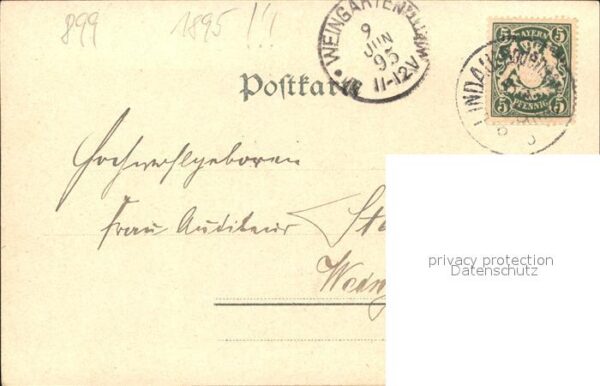 899 1895 !!
WEINGARTEN
9
JUN
95
11-12V
BAYERN
5 5
PFENNIG
5 5
LINDAU
Postkarte
Hochwohlgeboren
Frau Auditeur
privacy protection
Datenschutz